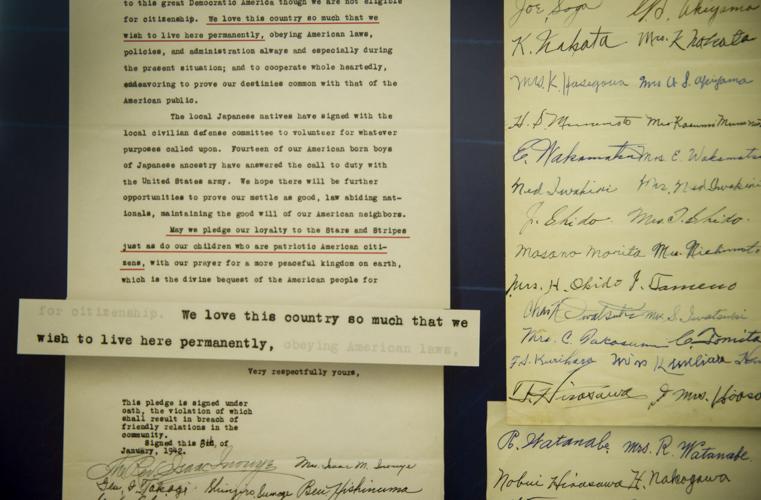 to this great Democratic America though we are not eligible
for citizenship. We love this country so much that we
wish to live here permanently, obeying American laws,
policies, and administration always and especially during
the present situation; and to cooperate whole heartedly,
endeavoring to prove our destinies common with that of the
American public.
The local Japanese natives have signed with the
local civilian defense committee to volunteer for whatever
purposes called upon. Fourteen of our American born boys
of Japanese ancestry have answered the call to duty with
the United States army. We hope there will be further
opportunities to prove our mettle as good, law abiding nat-
ionals, maintaining the good will of our American neighbors.
May we pledge our loyalty to the Stars and Stripes
just as do our children who are patriotic American citi-
zens, with our prayer for a more peaceful kingdom on earth,
which is the divine bequest of the American people for
for citizenship. We love this country so much that we
wish to live here permanently, obeying American laws,
Very respectfully yours,
This pledge is signed under
oath, the violation of which
shall result in breach of
friendly relations in the
community.
Signed this of
January, 1942.
Isaac Inouye Mrs. Isaac M. Inouye
Geo. Takagi Ben Hishinuma
Joe Soga Akiyama
K. Nakata Mrs. K Nakata
Mrs. K. Hasegawa Mrs Akiyama
H. S
E. Wakamatsu Mrs. E. Wakamatsu
Ned Iwakiri Mrs. Ned Iwakiri
Shido Mrs. Shido.
Masano Morita Nishimoto
Mrs. H. Okido
Mrs. S. Iwatsuki
Mrs. C. Takasumi C. Tomita
Kurihara
Hirasawa Mrs.
R. Watanabe Mrs. R. Watanabe
Nobui Hirasawa H. Nakagawa